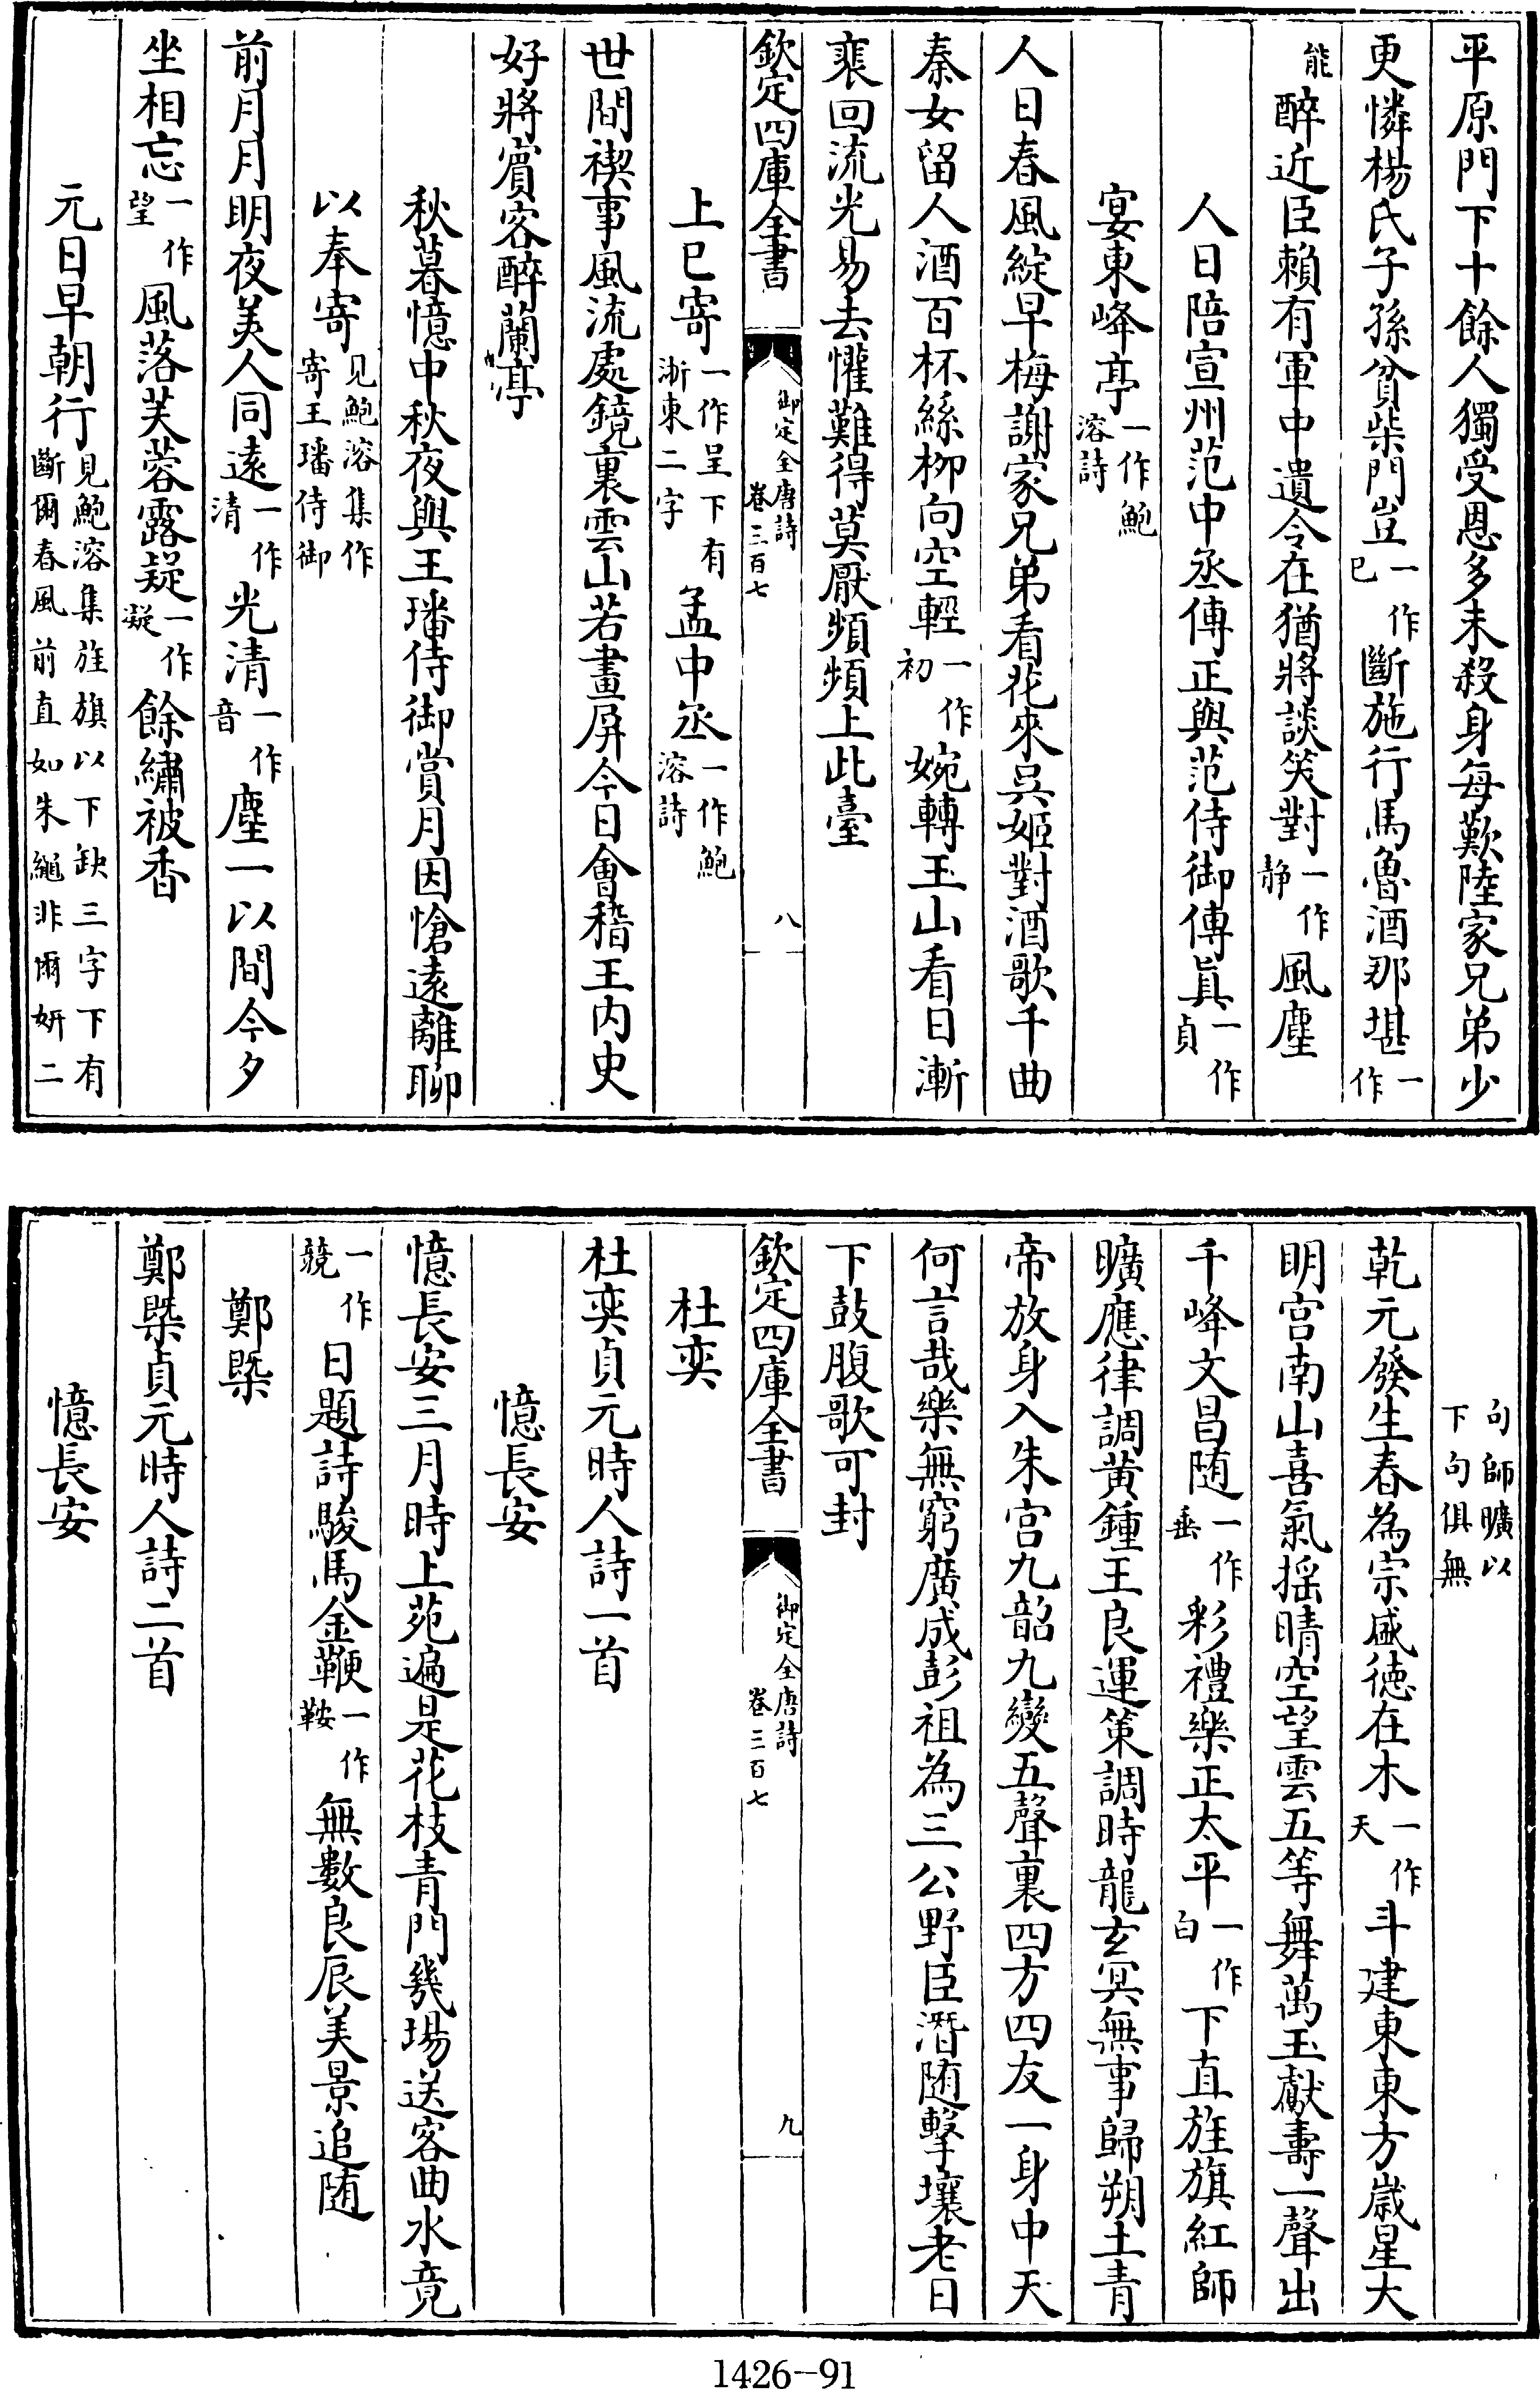 平原門下十餘人獨受恩多未殺身每歎陸家兄弟少
更憐楊氏子孫貧柴門豈一作已斷施行馬魯酒那堪一作
能醉近臣賴有軍中遺令在猶將談笑對一作静風塵
人日陪宣州范中丞傳正與范侍御傳眞一作貞
宴東峰亭一作鮑溶詩
人日春風綻早梅謝家兄弟看花來吳姬對酒歌千曲
秦女留人酒百杯絲柳向空輕一作初婉轉玉山看日漸
裴回流光易去懽難得莫厭頻頻上此臺
欽定四庫全書 御定全唐詩卷三百七 八
上巳寄一作呈下有淅東二字孟中丞一作鮑溶詩
世間禊事風流處鏡裏雲山若畫屏今日會稽王内史
好將賔客醉蘭亭
秋暮憶中秋夜與王璠侍御賞月因愴遠離聊
以奉寄見鮑溶集作寄王璠侍御
前月月明夜美人同遠一作清光清一作音塵一以間今夕
坐相忘一作望風落芙蓉露疑一作凝餘繡被香
元日早朝行見鮑溶集旌旗以下缺三字下有斷爾春風前直如朱繩非爾妍二
句師曠以下句俱無
乾元發生春為宗盛徳在木一作天斗建東東方嵗星大
明宫南山喜氣揺晴空望雲五等舞萬玉獻壽一聲出
千峰文昌随一作垂彩禮樂正太平一作白下直旌旗紅師
曠應律調黄鍾王良運策調時龍玄冥無事歸朔土青
帝放身入朱宫九韶九變五聲裏四方四友一身中天
何言哉樂無窮廣成彭祖為三公野臣潛随擊壤老日
下鼓腹歌可封
欽定四庫全書 御定全唐詩卷三百七 九
杜奕
杜奕貞元時人詩一首
憶長安
憶長安三月時上苑遍是花枝青門幾場送客曲水竟
一作競日題詩駿馬金鞭一作鞍無數良辰美景追随
鄭槩
鄭槩貞元時人詩二首
憶長安
1426-91